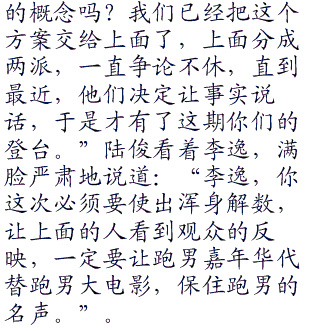 的概念吗？我们已经把这个
方案交给上面了，上面分成
两派，一直争论不休，直到
最近，他们决定让事实说
话，于是才有了这期你们的
登台。”陆俊看着李逸，满
脸严肃地说道：“李逸，你
这次必须要使出浑身解数，
让上面的人看到观众的反
映，一定要让跑男嘉年华代
替跑男大电影，保住跑男的
名声。”。